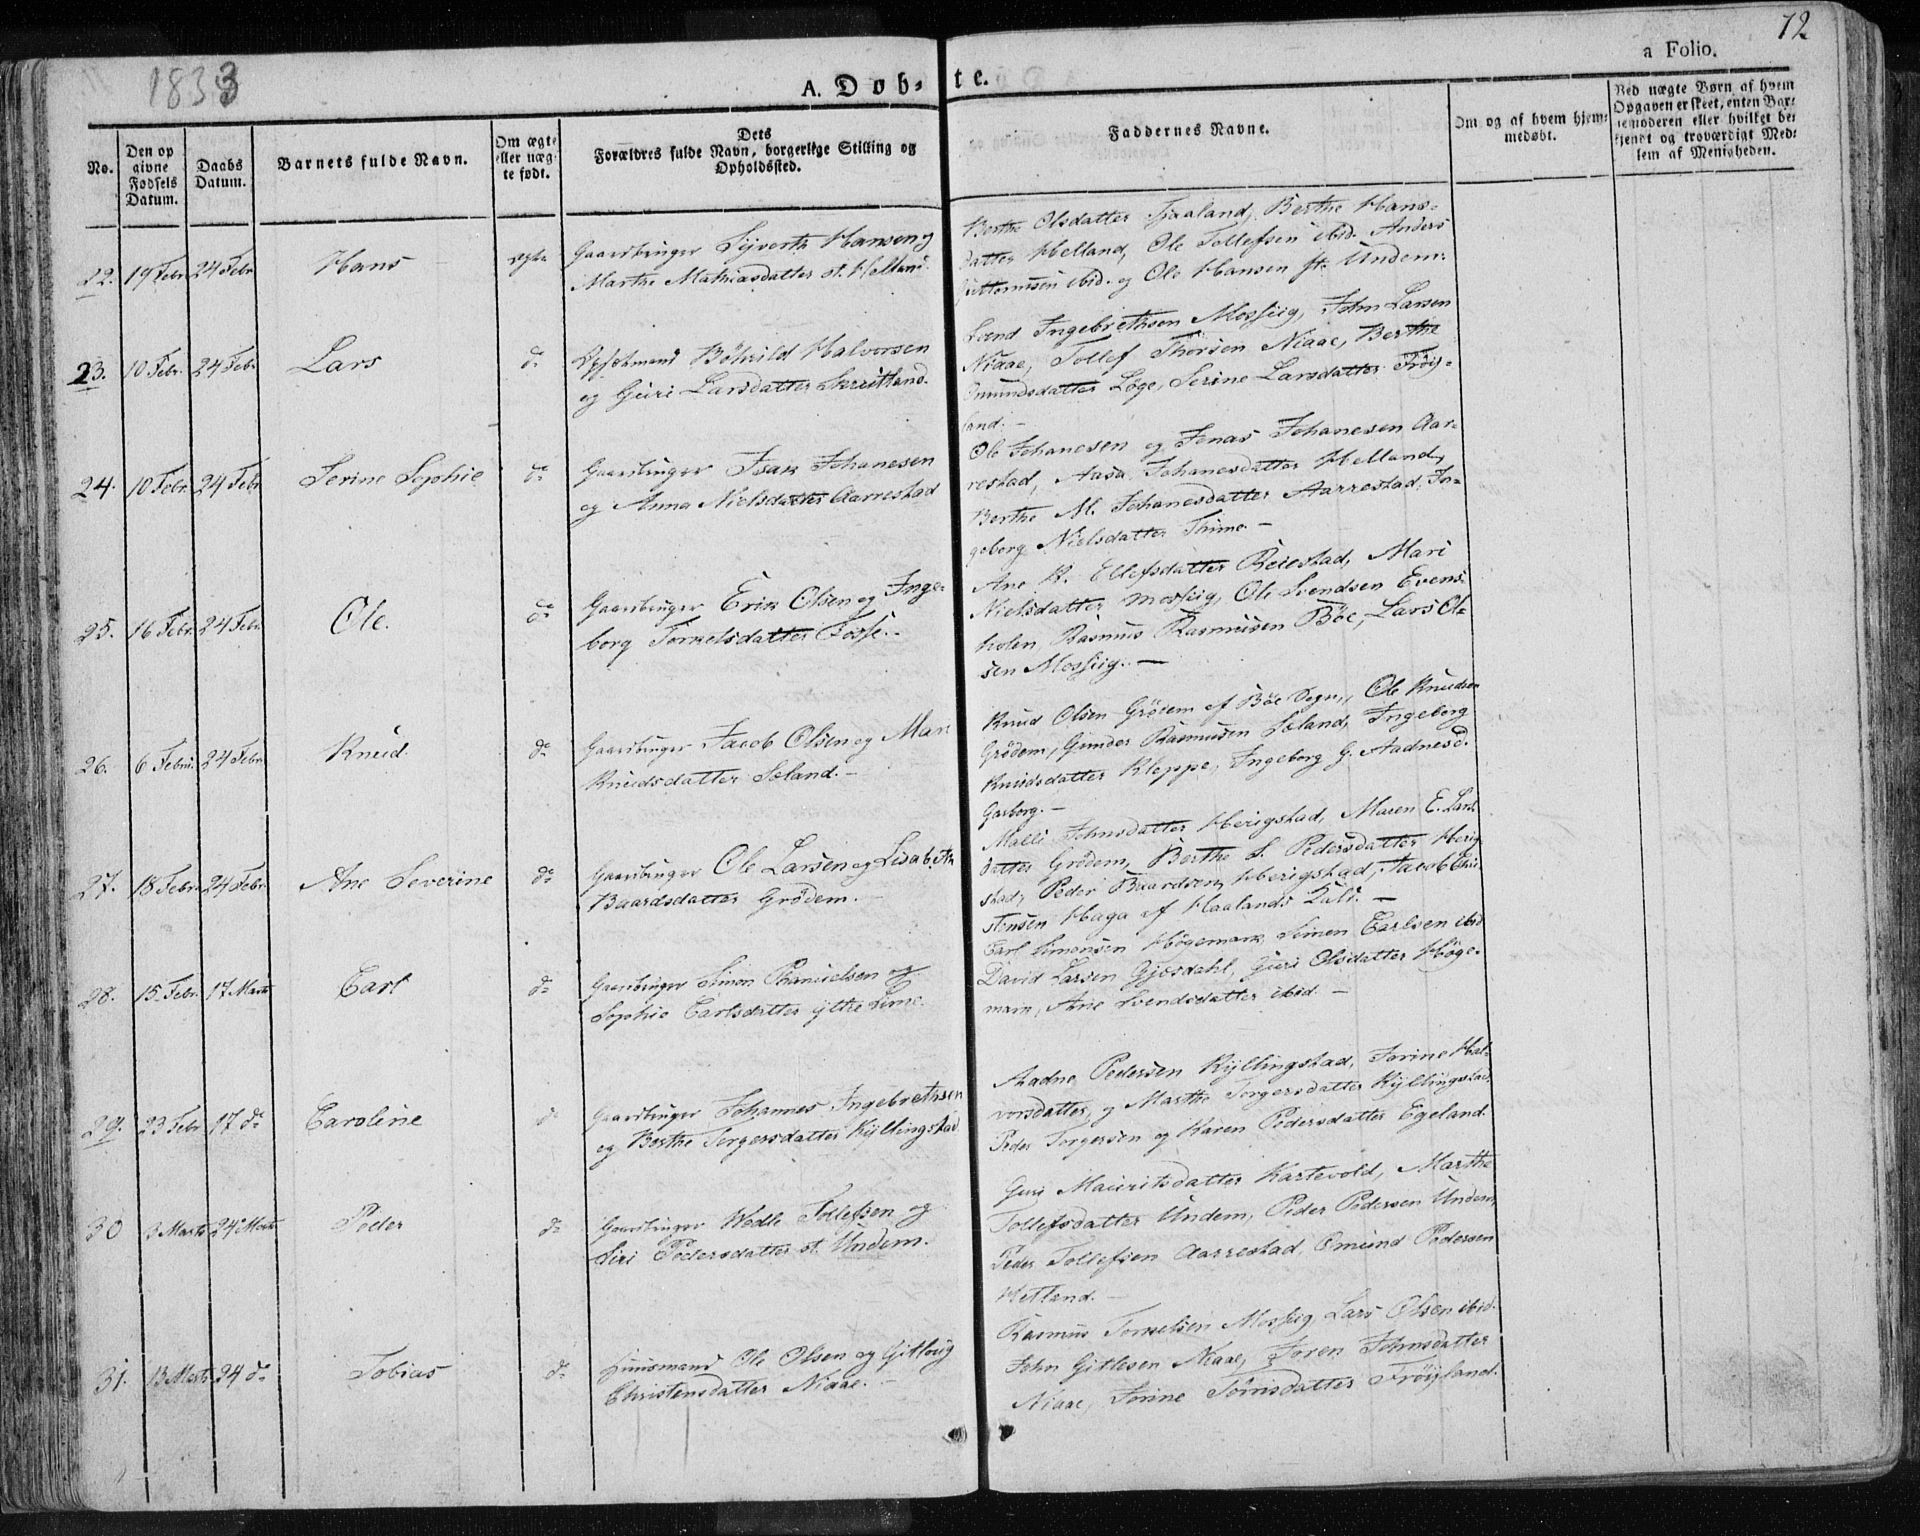 1833
A. Døb-te.
a Folio.
12
No.
Den op
givne
Fødsels
Datum.
Daabs
Datum.
Barnets fulde Navn.
Om ægte
eller uæg-
te født.
Dets
Forældres fulde Navn, borgerlige Stilling og
Opholdssted.
Faddernes Navne.
Om og af hvem hjem-
medøbt.
Ved uægte Børn af hvem
Opgaven er skeet, enten Bar-
nemoderen eller hvilket be-
kjendt og troværdigt Med-
lem af Menigheden.
22. 19 Febr. 24 Febr. Hans ægte
Gaardbruger Syvert Hansen og
Marthe Mathiasdatter st. Helland.
Berthe Olsdatter Tjaaland, Berthe Hans-
datter Helland, Ole Tollefsen ibid. Anders
Guttormsen ibid. og Ole Hansen st. Undem.
23. 10 Febr. 24 Febr. Lars do
Bøhrild Halvorsen
og Guri Larsdatter Skrutland.
Ingebrethsen Mossiig, John Larsen
Niaae, Tollef Thorsen Niaae, Berthe
Omundsdatter Løge, Serine Larsdatter Frøy-
land. -
24. 10 Febr. 24 Febr. Serine Sophie do
Gaardbruger Isak Johanesen
og Anna Nielsdatter Aarrestad
Ole Johanesen og Jonas Johanesen Aar-
restad, Aasa Johanesdatter Helland,
Berthe M. Johanesdatter Aarrestad, In-
geborg Nielsdatter Thime. -
25. 16 Febr. 24 Febr. Ole. do
Gaardbruger Erik Olsen og Inge-
borg Torkelsdatter Fosse. -
Ane H. Ellefsdatter Reiestad, Mari
Nielsdatter Mossiig, Ole Svendsen Evens-
holen, Rasmus Rasmussen Bøe, Lars Ol-
sen Mossiig. -
26. 6 Febr. 24 Febr. Knud do
Gaardbruger Jacob Olsen og Mari
Knudsdatter Søland. -
Knud Olsen Grødem af Bøe Sogn, Ole Knudsen
Grødem, Gunder Rasmusen Søland, Ingeborg
Knudsdatter Kleppe, Ingeborg G. Aadnesd.
Garborg. -
27. 18 Febr. 24 Febr. Ane Severine do
Gaardbruger Ole Larsen og Lisabeth
Baardsdatter Grødem. -
Malli Johnsdatter Herigstad, Maren E. Lars-
datter Grødem, Berthe S. Pedersdatter Herig-
stad, Peder Baardsen Herigstad, Jacob Chri-
stensen Haga af Haalands Kald. -
28. 15. Febr. 17 Marts Carl do
Gaardbruger Simon Thanielsen og
Sophie Carlsdatter ytre Lime.
Carl Simonsen Høgemark, Simon Carlsen ibid
David Larsen Gjesdahl, Guri Olsdatter Høge-
mark, Ane Svendsdatter ibid. -
29. 23 Febr 17 do Caroline do
Gaardbruger Johannes Ingebrethsen
og Berthe Torgersdatter Kyllingstad.
Aadne Pedersen Kyllingstad, Torine Hal-
vorsdatter, og Marthe Torgersdatter Kyllingstad,
Peder Torgersen og Karen Pedersdatter Egeland.
30 3 Marts 24 Marts Peder do
Gaardbruger Wedle Tollefsen og
Siri Pedersdatter st. Undem.
Guri Mauritsdatter Kartevold, Marthe
Tollefsdatter Undem, Peder Pedersen Undem,
Peder Tollefsen Aarrestad, Omund Pedersen
Hetland. -
31. 13 Marts 24 do Tobias do
Huusmand Ole Olsen og Gitlug
Christensdatter Niaae. -
Rasmus Torkelsen Mossiig, Lars Olsen ibid.
John Gitlesen Niaae, Joren Johnsdatter
Niaae, Torine Tørrisdatter Frøyland.